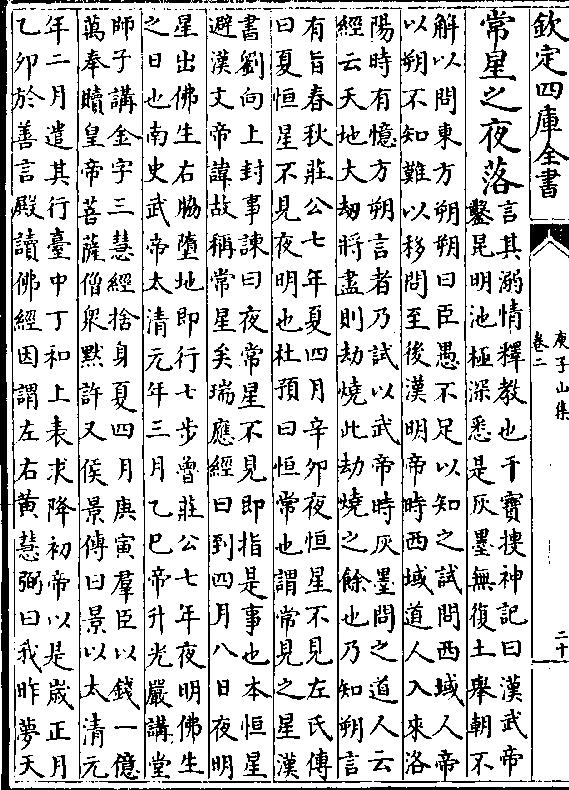 欽定四庫全書
庾子山集
卷二
二十
常星之夜落
言其溺情釋教也干寶搜神記曰漢武帝
鑿昆明池極深悉是灰墨無復土舉朝不
解以問東方朔朔曰臣愚不足以知之試問西域人帝
以朔不知難以移問至後漢明帝時西域道人入來洛
陽時有憶方朔言者乃試以武帝時灰墨問之道人云
經云天地大劫將盡則劫燒此劫燒之餘也乃知朔言
有旨春秋莊公七年夏四月辛卯夜恒星不見左氏傳
曰夏恒星不見夜明也杜預曰恒常也謂常見之星漢
書劉向上封事諫曰夜常星不見即指是事也本恒星
避漢文帝諱故稱常星矣瑞應經曰到四月八日夜明
星出佛生右脇墮地即行七步曾莊公七年夜明佛生
之日也南史武帝太清元年三月乙巳帝升光嚴講堂
師子講金字三慧經捨身夏四月庚寅羣臣以錢一億
萬奉贖皇帝菩薩僧衆默許又侯景傳曰景以太清元
年二月遣其行臺中丁和上表求降初帝以是歲正月
乙卯於善言殿讀佛經因謂左右黃慧弼曰我昨夢天